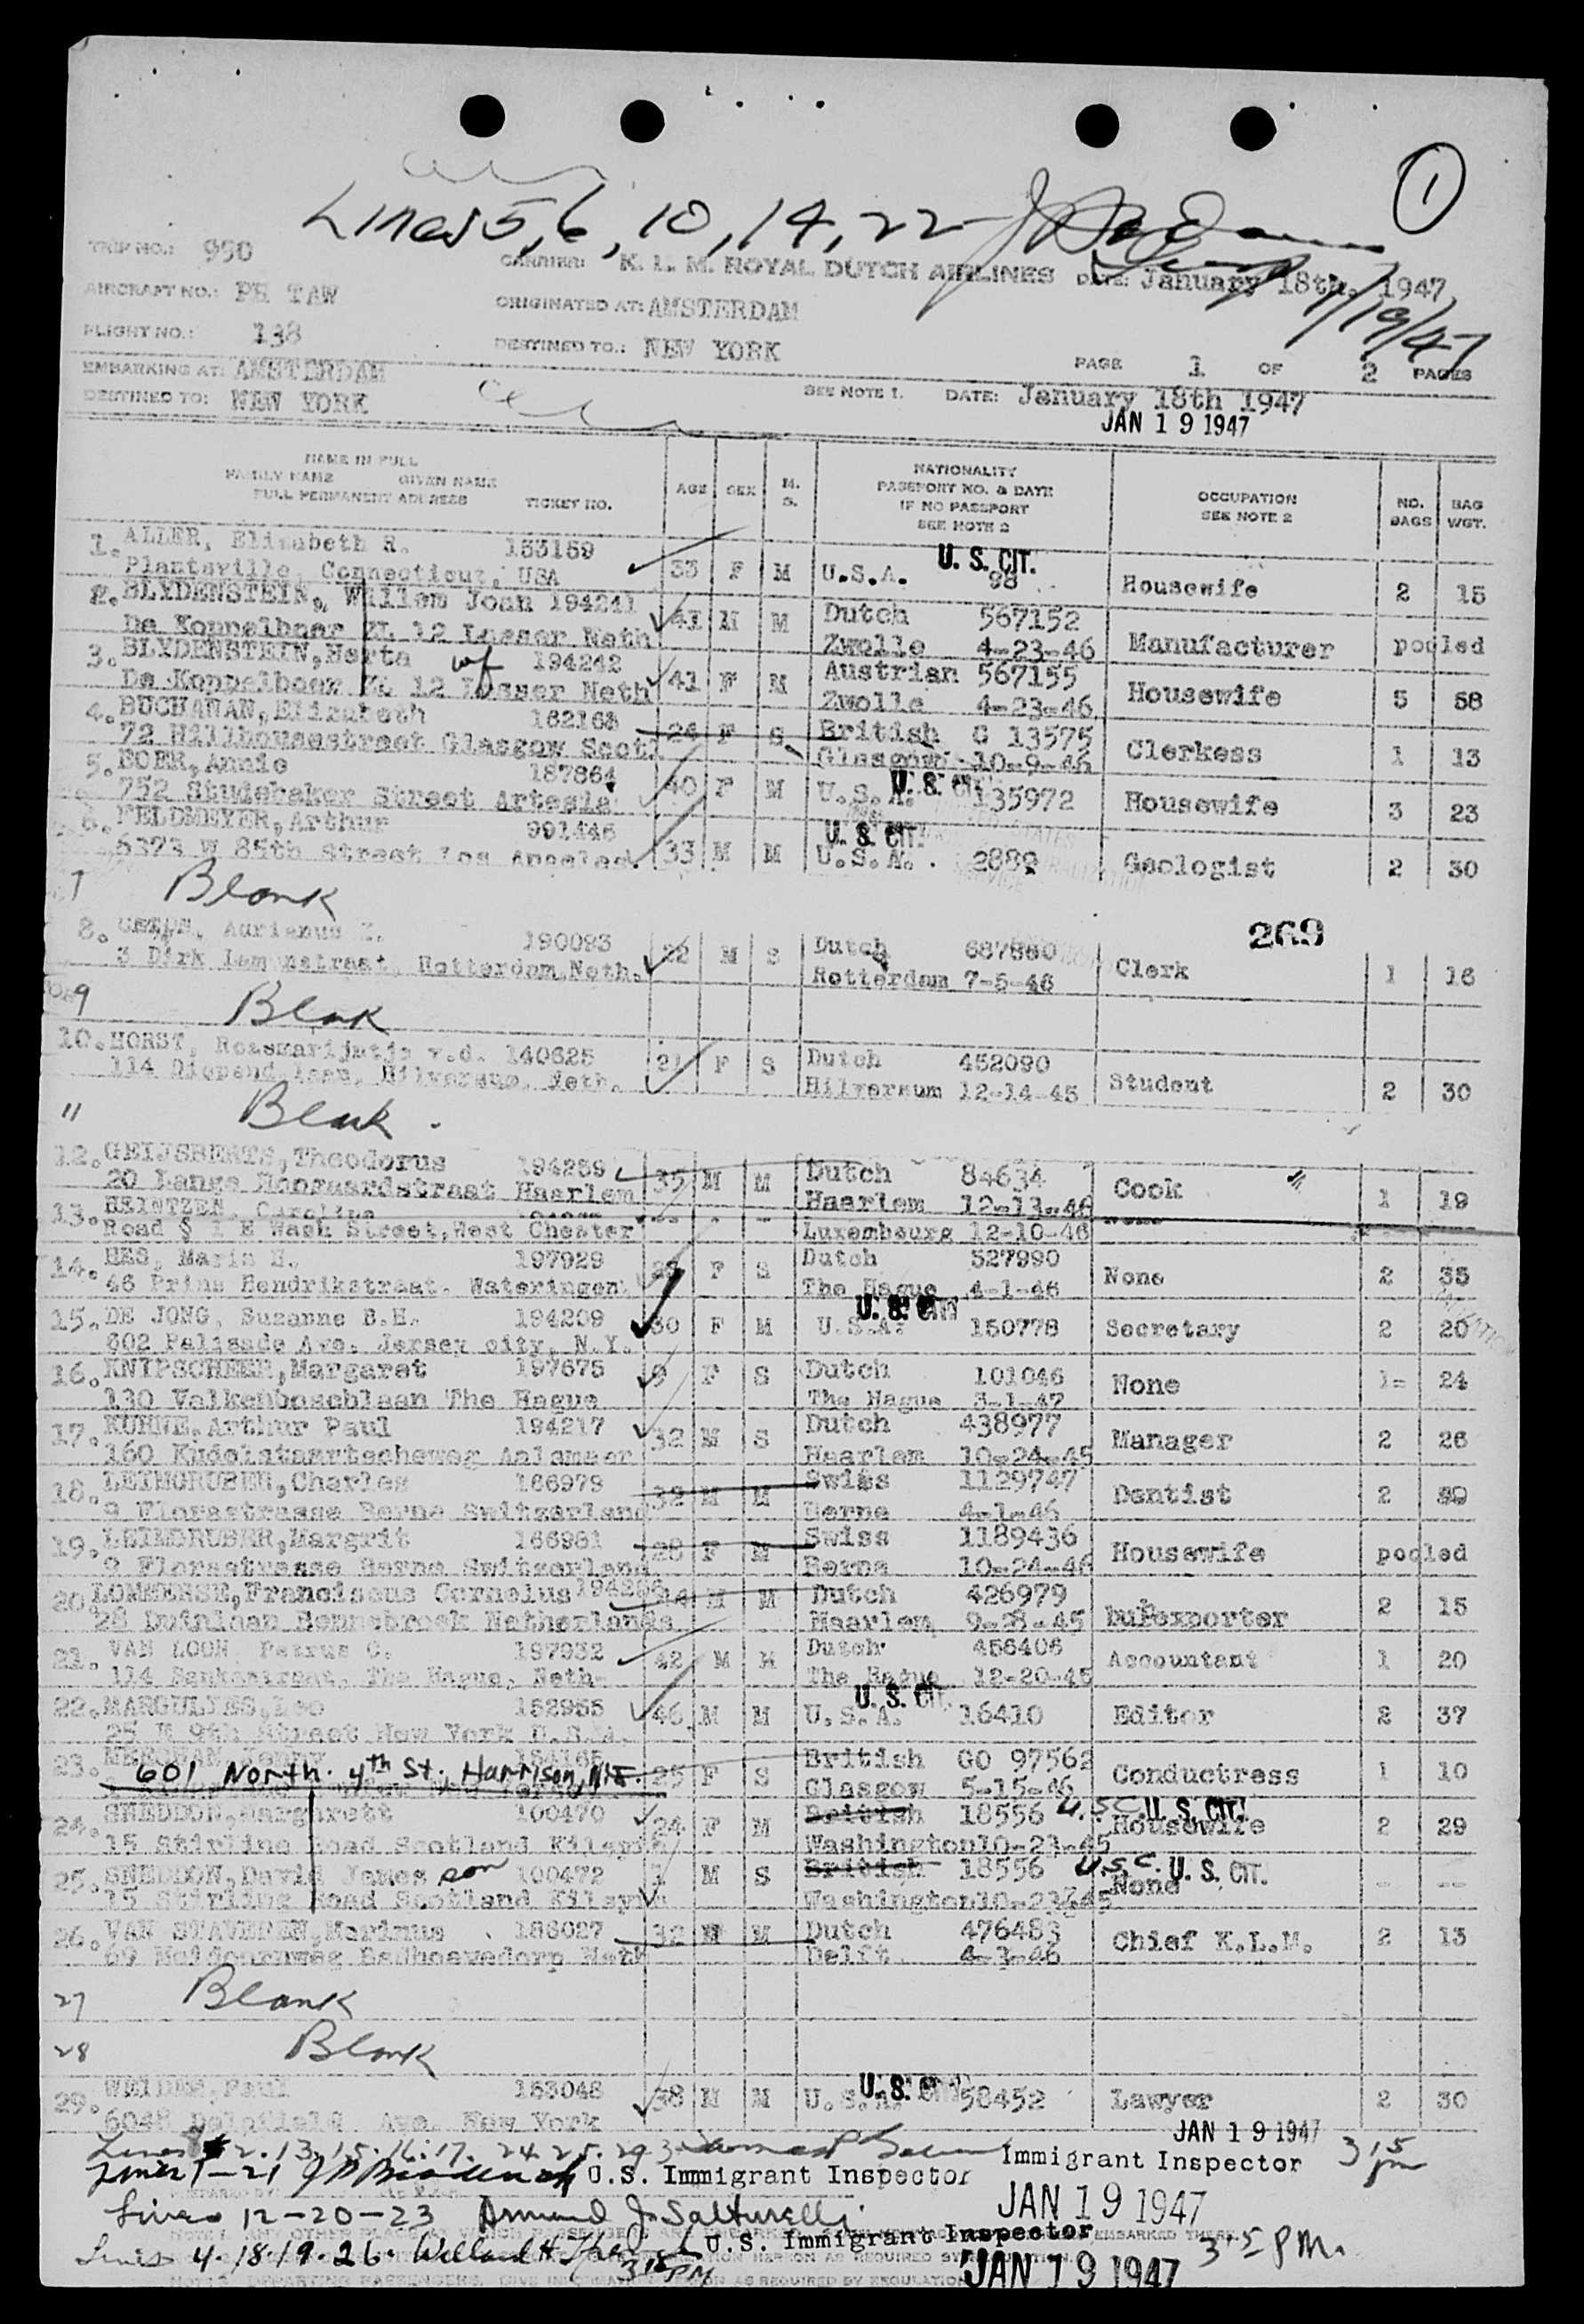 1
Lines 5, 6, 10, 14, 22
TRIP NO.: 990 CARRIER: K. L. M. ROYAL DUTCH AIRLINES DATE: January 18th, 1947,
1/19/47
AIRCRAFT NO.: PH TAW ORIGINATED AT: AMSTERDAM
FLIGHT NO.: 138 DESTINED TO.: NEW YORK PAGE 1 OF 2 PAGES
EMBARKING AT: AMSTERDAM SEE NOTE 1. DATE: January 18th 1947
DESTINED TO: NEW YORK
JAN 19 1947
NAME IN FULL
FAMILY NAME GIVEN NAME
FULL PERMANENT ADDRESS TICKET NO. AGE SEX M. S. NATIONALITY PASSPORT NO. & DATE IF NO PASSPORT SEE NOTE 2 OCCUPATION SEE NOTE 2 NO. BAGS BAG WGT.
1. ALLER, Elizabeth R. 153159 33 F M U.S.A. U. S. CIT. 98 Housewife 2 15
Plantsville, Connecticut, USA
2. BLYDENSTEIN, Willem Joan 194241 41 M M Dutch 567152 Manufacturer pooled
De Koppelboer ZL 12 Losser Neth Zwolle 4-23-46
3. BLYDENSTEIN, Herta wf 194242 41 F M Austrian 567155 Housewife 5 58
De Koppelboer ZL 12 Losser Neth Zwolle 4-23-46
4. BUCHANAN, Elizabeth 162163 24 F S British C 13575 Clerkess 1 13
72 Hillhousestreet Glasgow Scotl Glasgow 10-9-46
5. BOER, Annie 187864 40 F M U.S.A. U. S. CIT. 135972 Housewife 3 23
752 Studebaker Street Artesia
6. FELDMEYER, Arthur 991446 33 M M U.S.A. U. S. CIT. 2889 Geologist 2 30
5373 W 85th Street Los Angeles.
7 Blank
269
8. Aurianus 190093 22 M S Dutch 687880 Clerk 1 16
3 Dirk straat, Rotterdam, Neth. Rotterdam 7-5-46
9 Blank
10. HORST, Rosemarijntje v.d. 140625 21 F S Dutch 452090 Student 2 30
114 laan, Hilversum, Neth. Hilversum 12-14-45
11 Blank.
12. GEIJSBERTS, Theodorus 194259 35 M M Dutch 84634 Cook 1 19
20 Lange straat Haarlem Haarlem 12-13-46
13. HEINTZEN, Caroline
Road § 1 E Wash Street, West Chester Luxembourg 12-10-46
14. HES, Maria H. 197929 F S Dutch 527990 None 2 35
46 Prins Hendrikstraat. Wateringen The Hague 4-1-46
15. DE JONG, Suzanne B.H. 194209 30 F M U.S.A. U. S. CIT 150778 Secretary 2 20
602 Palisade Ave. Jersey city, N.Y.
16. KNIPSCHEER, Margaret 197675 9 F S Dutch 101046 None 1 24
130 Valkenboschlaan The Hague The Hague 3-1-47
17. KUHNE, Arthur Paul 194217 32 M S Dutch 438977 Manager 2 26
160 Kudelstaartscheweg Aalsmeer Haarlem 10-24-45
18. LEIMGRUBER, Charles 166979 32 M M Swiss 1129747 Dentist 2 30
9 Florastrasse Berne Switzerland Berne 4-1-46
19. LEIMGRUBER, Margrit 166981 28 F M Swiss 1189436 Housewife pooled
9 Florastrasse Berne Switzerland Berne 10-24-46
20 LOMMERSE, Franciscus Cornelus 44 M M Dutch 426979 exporter 2 15
28 Duinlaan Bennebroek Netherlands Haarlem 9-28-45
21. VAN LOON, Petrus C. 197932 42 M M Dutch 456406 Accountant 1 20
114 straat, The Hague, Neth. The Hague 12-20-45
22. MARGULIES, Leo 152955 46 M M U.S.A. U. S. CIT. 16410 Editor 2 37
25 E 9th Street New York U.S.A.
23. 25 F S British GO 97562 Conductress 1 10
601 North. 4th St. Harrison, N.J. Glasgow 5-15-46
24. SNEDDON, Margarett 100470 24 F M British 18556 U.S.C. U. S. CIT. Housewife 2 29
15 Stirling Road Scotland Kilsyth Washington 10-23-45
25. SNEDDON, David James son 100472 1 M S British 18556 U.S.C. U. S. CIT. None - --
15 Stirling Road Scotland Kilsyth Washington 10-23-45
26. VAN STAVEREN, Marinus 188027 32 M M Dutch 476483 Chief K.L.M. 2 13
69 Badhoevedorp Neth Delft 4-1-46
27 Blank
28 Blank
29. Paul 153048 38 M M U.S.A. U. S. CIT 58452 Lawyer 2 30
6048 Ave. New York
JAN 19 1947
Lines 2. 13. 15. 16. 17. 24. 25. 29 Immigrant Inspector 315 pm
Lines 1-21 U.S. Immigrant Inspector
JAN 19 1947
Lines 12-20-23 Armand J. Salturelli
U.S. Immigrant Inspector 3:15 PM.
Lines 4. 18. 19. 26. Willard H.
315 PM
JAN 19 1947